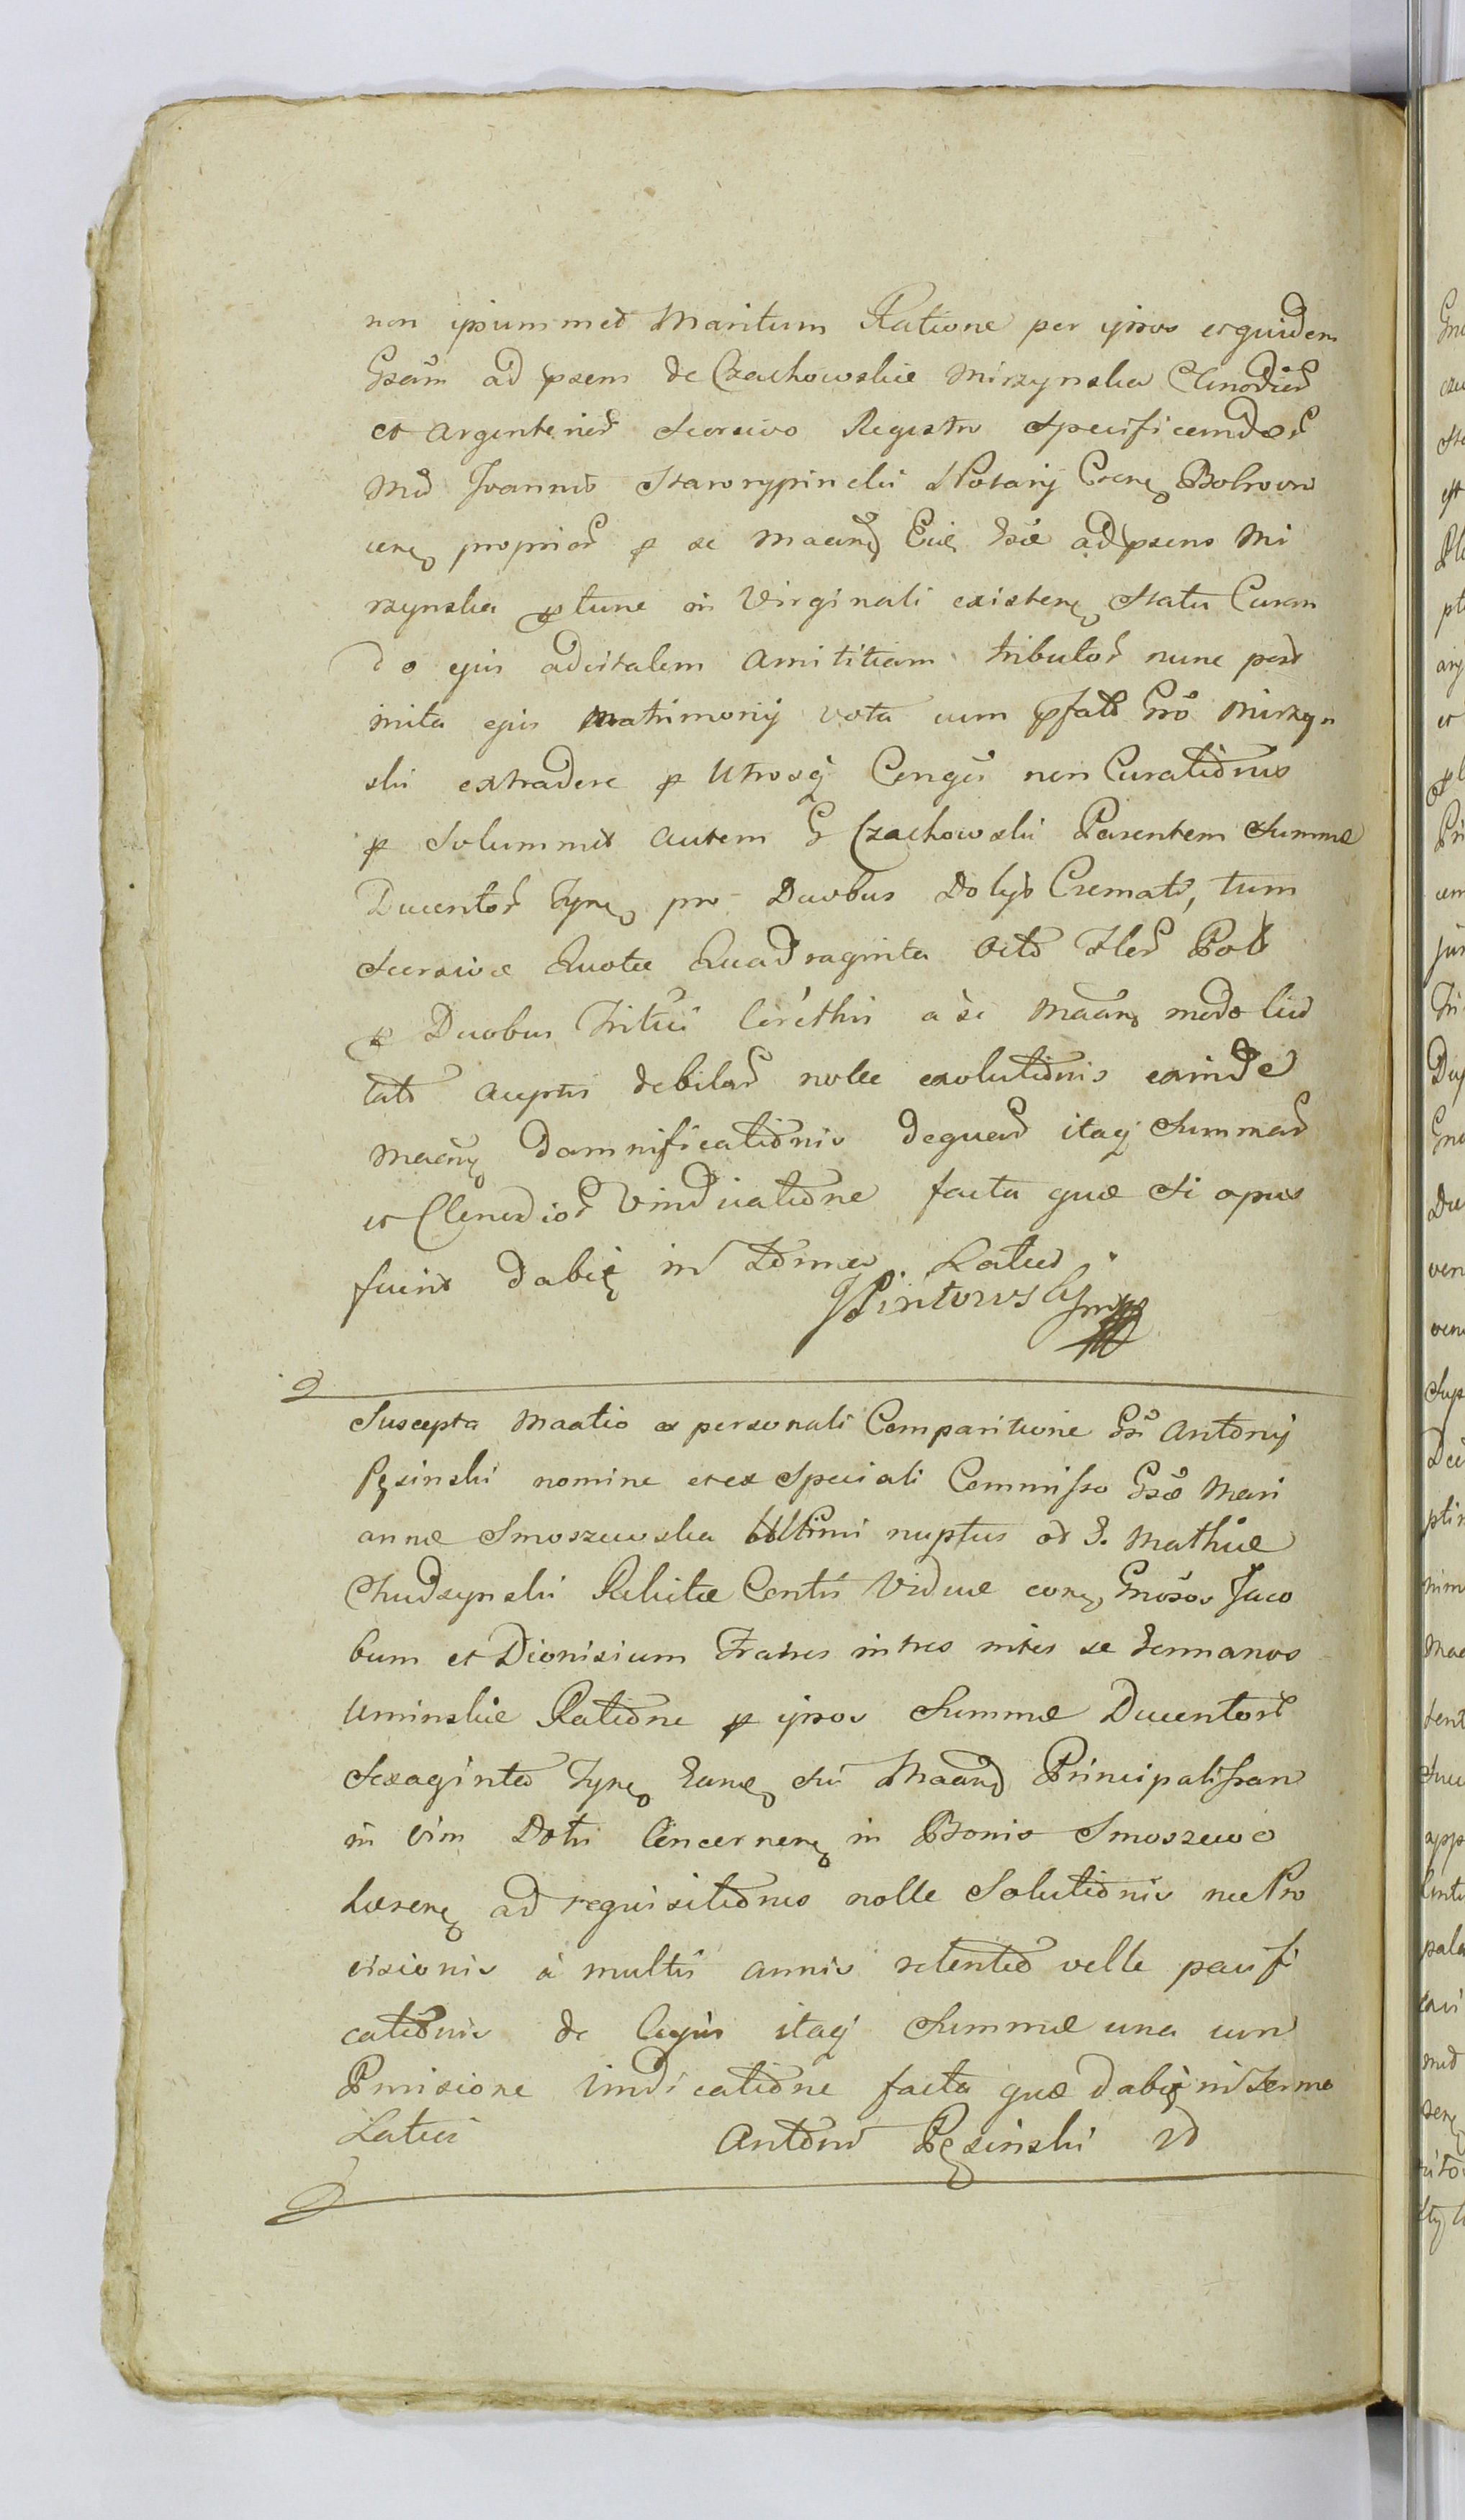 non ipsummet Maritum Ratione per ipsos et quidem
Gsam ad psens de Czachowskie Mirzynska Clenodior
et argenterier Seorsivo Registro Specificandor
Md Joannis Starorypinski Notarij Crens Bobrovni
cens proprior p se Maand Eid Gsae ad psens Mi
rzynska p tunc in Virginali existens Statu Curan
do ejus aditalem amititiam tributor nunc post
inita ejus Matrimonij vota cum pfato Gso Mirzyn
ski extradere p Utrosq Conges non Curationis
p Solummet autem G Czachowski Parentem Summae
Ducentor Tynf pro Duobus Dolijs Cremati, tum
Seorsivae Quotae Quadraginta Octo Fler Pol
p Duobus Tritici Corethis a se Maan modo lici
tato acceptis debitar nolle exolutionis exinde
Maan damnificationis dequar itaq Summar
et Clenodior Vindicatione facta quae Si opus
fuerit dabit in Termo. Latus
JPiotrowsky mpp
Suscepta Maatio ex personali Comparitione Gsi Antonij
Pęsinski nomine et ex Speciali Commisso Gsae Mari
annae Smoszewska Ultimi nuptus od G. Mathiae
Chudzynski Relictae Contis Viduae cora Gnosos Jaco
bum et Dionisium Fratres intres inter se Germanos
Uminskie Ratione p ipsos Summae Ducentor
Sexaginta Tynf Eand Sui Maand Principalissan
in vim Dotis Concernens in Bonis Smoszewo
haerens ad requisitiones nolle Solutionis nec Pro
visionis à multis annis retentae velle pacifi
cationis de cujus itaq Summae una cum
Pmisione Vindicatione facta quae dabit in Termo
Latius Antoni Pęsinski m